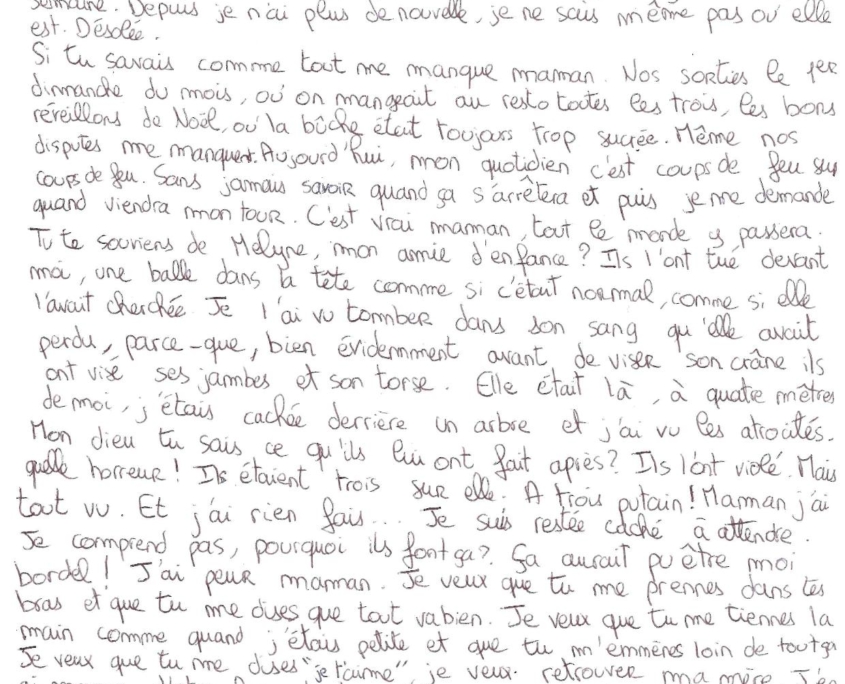 semaine. Depuis je n'ai plus de nouvelle, je ne sais même pas où elle
est. Désolée.
Si tu savais comme tout me manque maman. Nos sorties le 1er
dimanche du mois, où on mangeait au resto toutes les trois, les bons
réveillons de Noël, où la bûche était toujours trop sucrée. Même nos
disputes me manquent. Aujourd'hui, mon quotidien c'est coups de feu sur
coups de feu. Sans jamais savoir quand ça s'arrêtera et puis je me demande
quand viendra mon tour. C'est vrai maman, tout le monde y passera.
Tu te souviens de Melyne, mon amie d'enfance ? Ils l'ont tué devant
moi, une balle dans la tête comme si c'était normal, comme si elle
l'avait cherchée. Je l'ai vu tomber dans son sang qu'elle avait
perdu, parce-que, bien évidemment avant de viser son crâne ils
ont visé ses jambes et son torse. Elle était là, à quatre mètres
de moi, j'étais cachée derrière un arbre et j'ai vu les atrocités.
Mon dieu tu sais ce qu'ils lui ont fait après? Ils l'ont violé. Mais
quelle horreur ! Ils étaient trois sur elle. A trois putain ! Maman j'ai
tout vu. Et j'ai rien fais... Je suis restée caché à attendre.
Je comprend pas, pourquoi ils font ça ?. Ça aurait pu être moi
bordel ! J'ai peur maman. Je veux que tu me prennes dans tes
bras et que tu me dises que tout va bien. Je veux que tu me tiennes la
main comme quand j'étais petite et que tu m'emmènes loin de tout ça
Je veux que tu me dises "je t'aime", je veux retrouver ma mère.